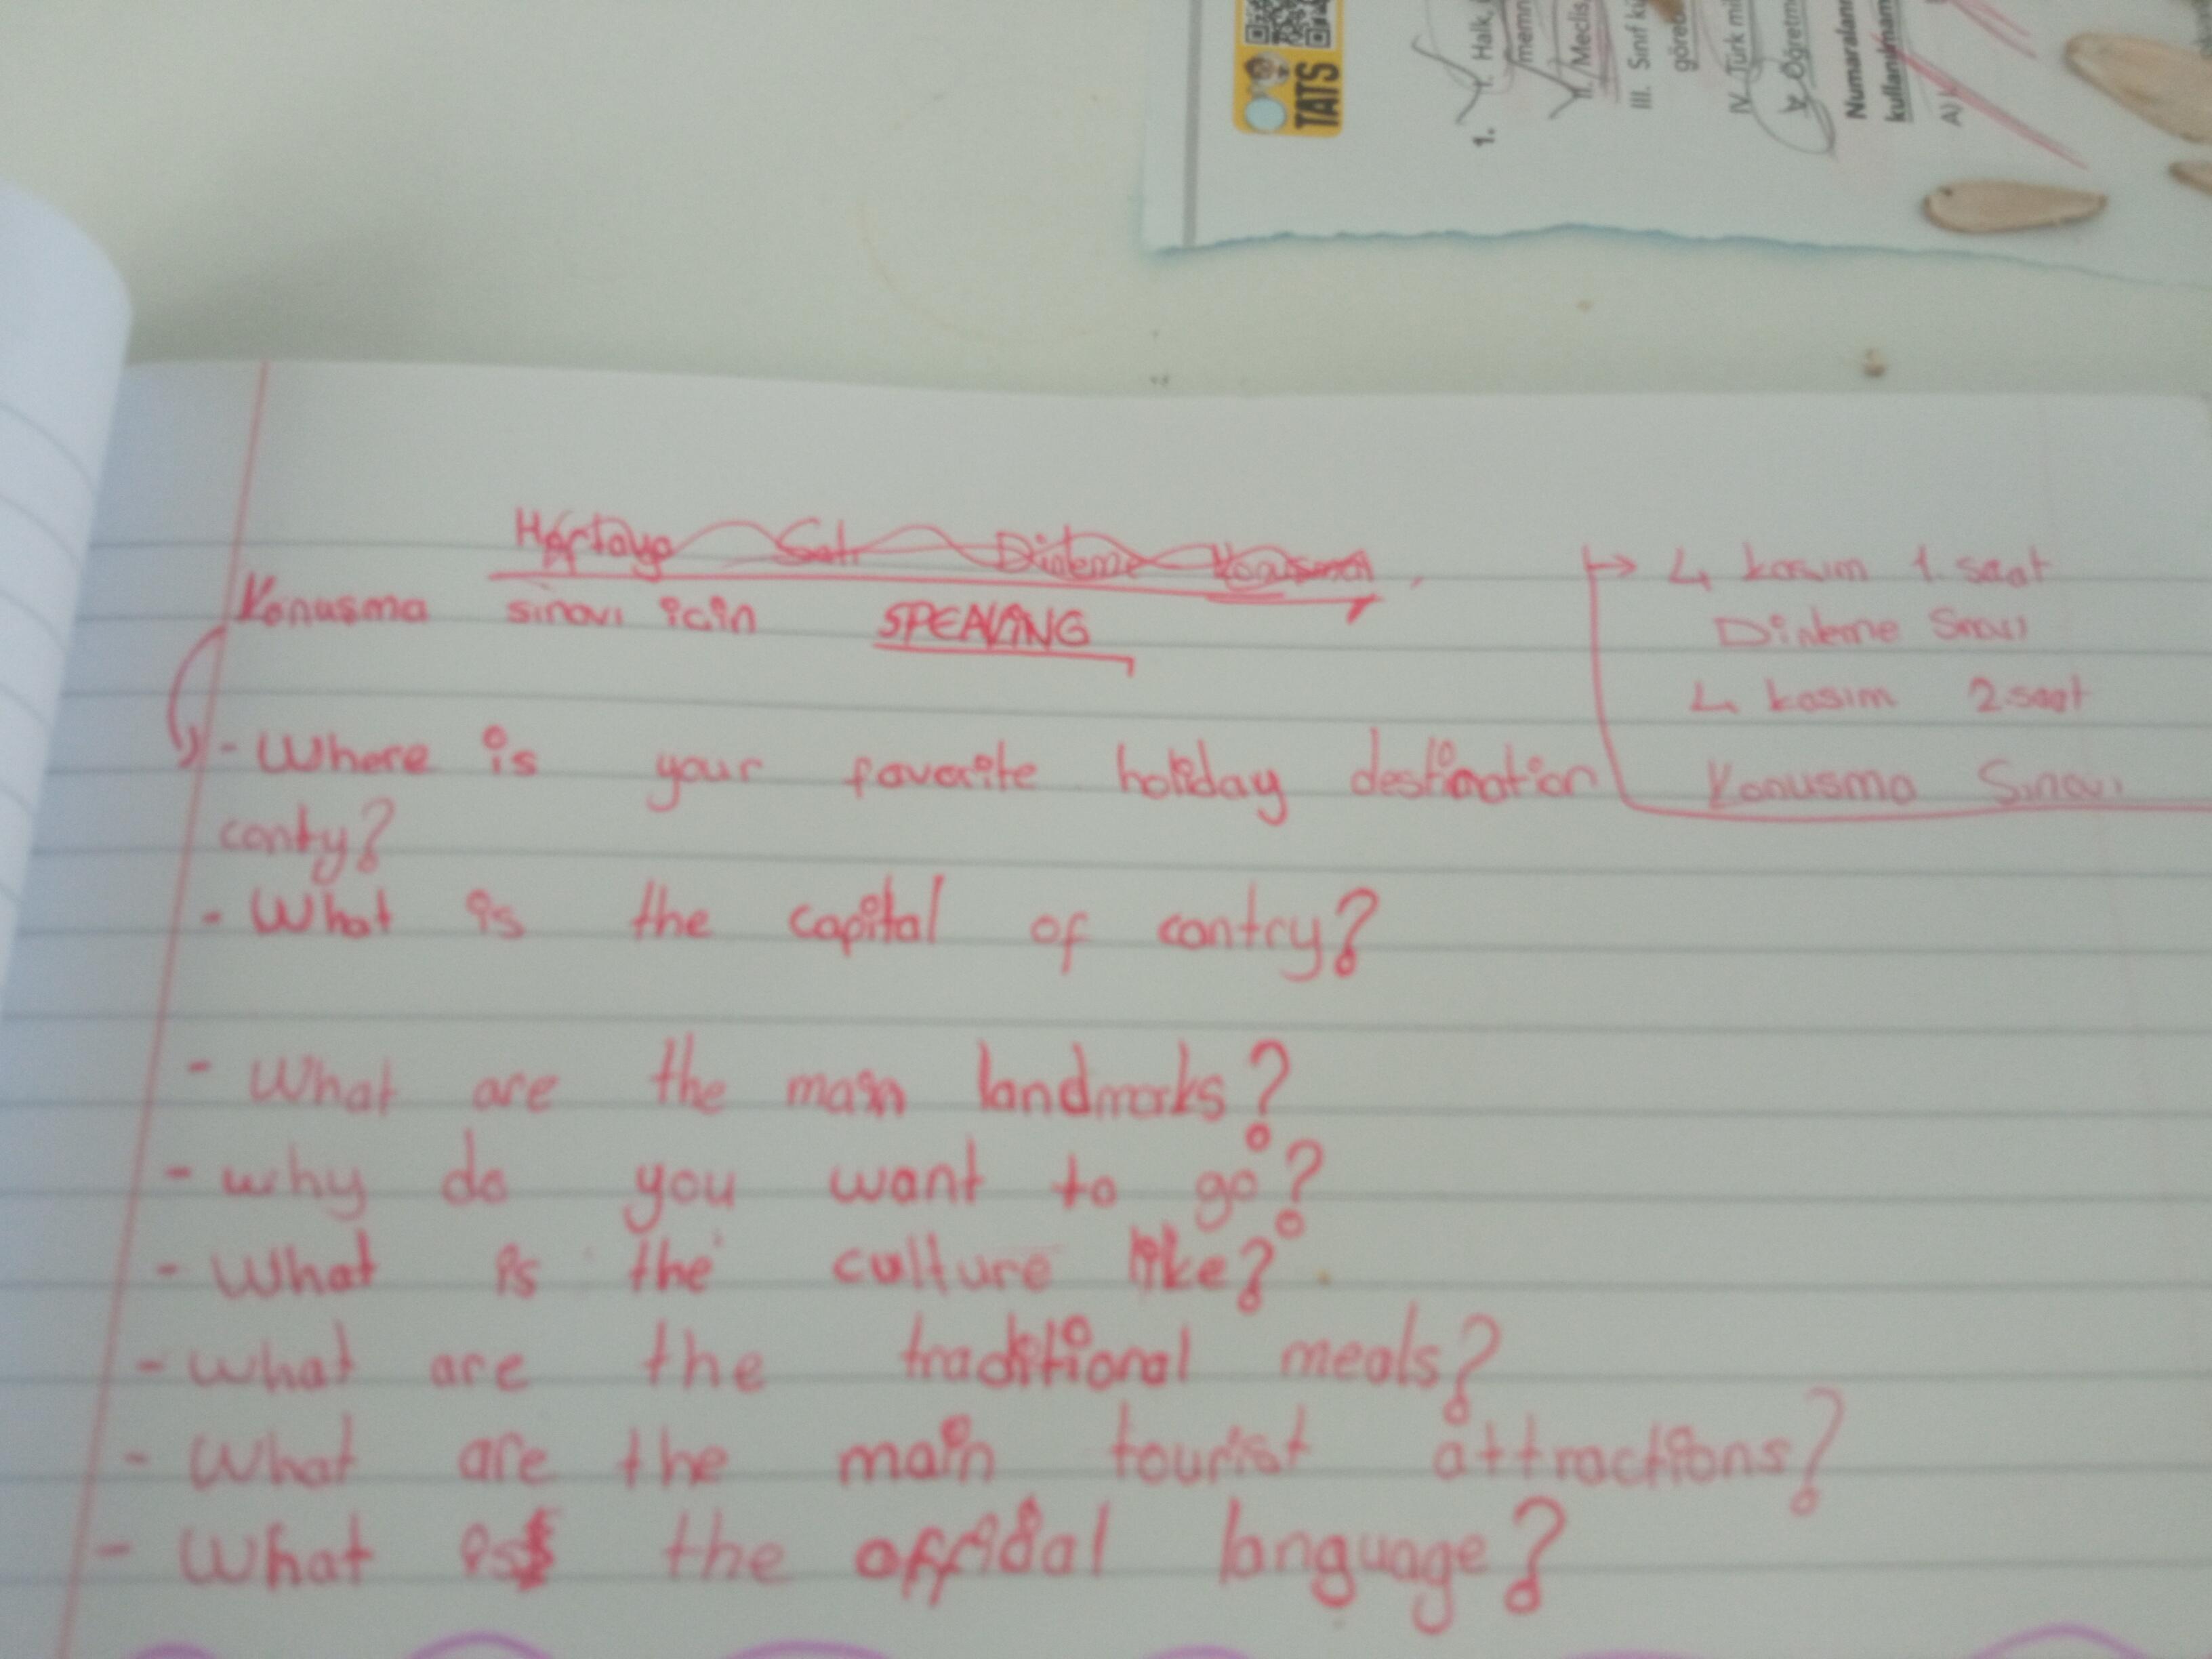 TATS
1. I. Halk,
memn
II. Meclis,
III. Sınıf kü
göred
IV. Türk mil
V. Öğretm
Numaralann
kullanılmam
A) I
Haftaya Salı Dinleme Konuşma
Konusma sınavı için SPEAKING
4 kasım 1. saat
Dinleme Sınavı
4 kasım 2. saat
Konusma Sınavı
- Where is your favorite holiday destination
conty?
- What is the capital of contry?
- What are the main landmarks?
- why do you want to go?
- What is the culture like?
- What are the traditional meals?
- What are the main tourist attractions?
- What is the official language?